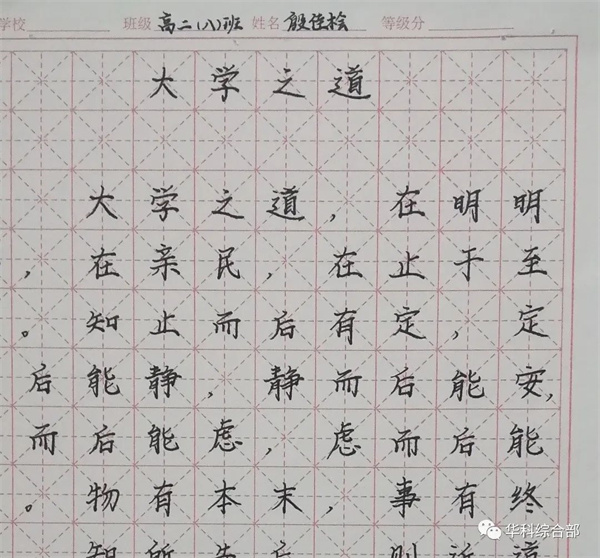 学校 班级 高二(八)班 姓名 等级分
大学之道
大学之道，在明明
，在亲民，在止于至
。知止而后有定，定
后能静，静而后能安，
而后能虑，虑而后能
。物有本末，事有终
知所先后 则近道
华科综合部